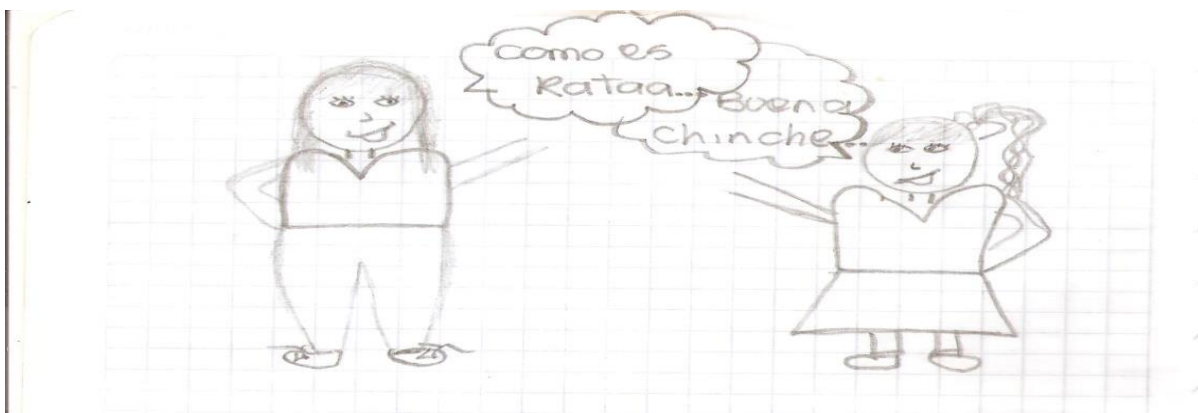 Como es
Rataa...
Buena
Chinche...